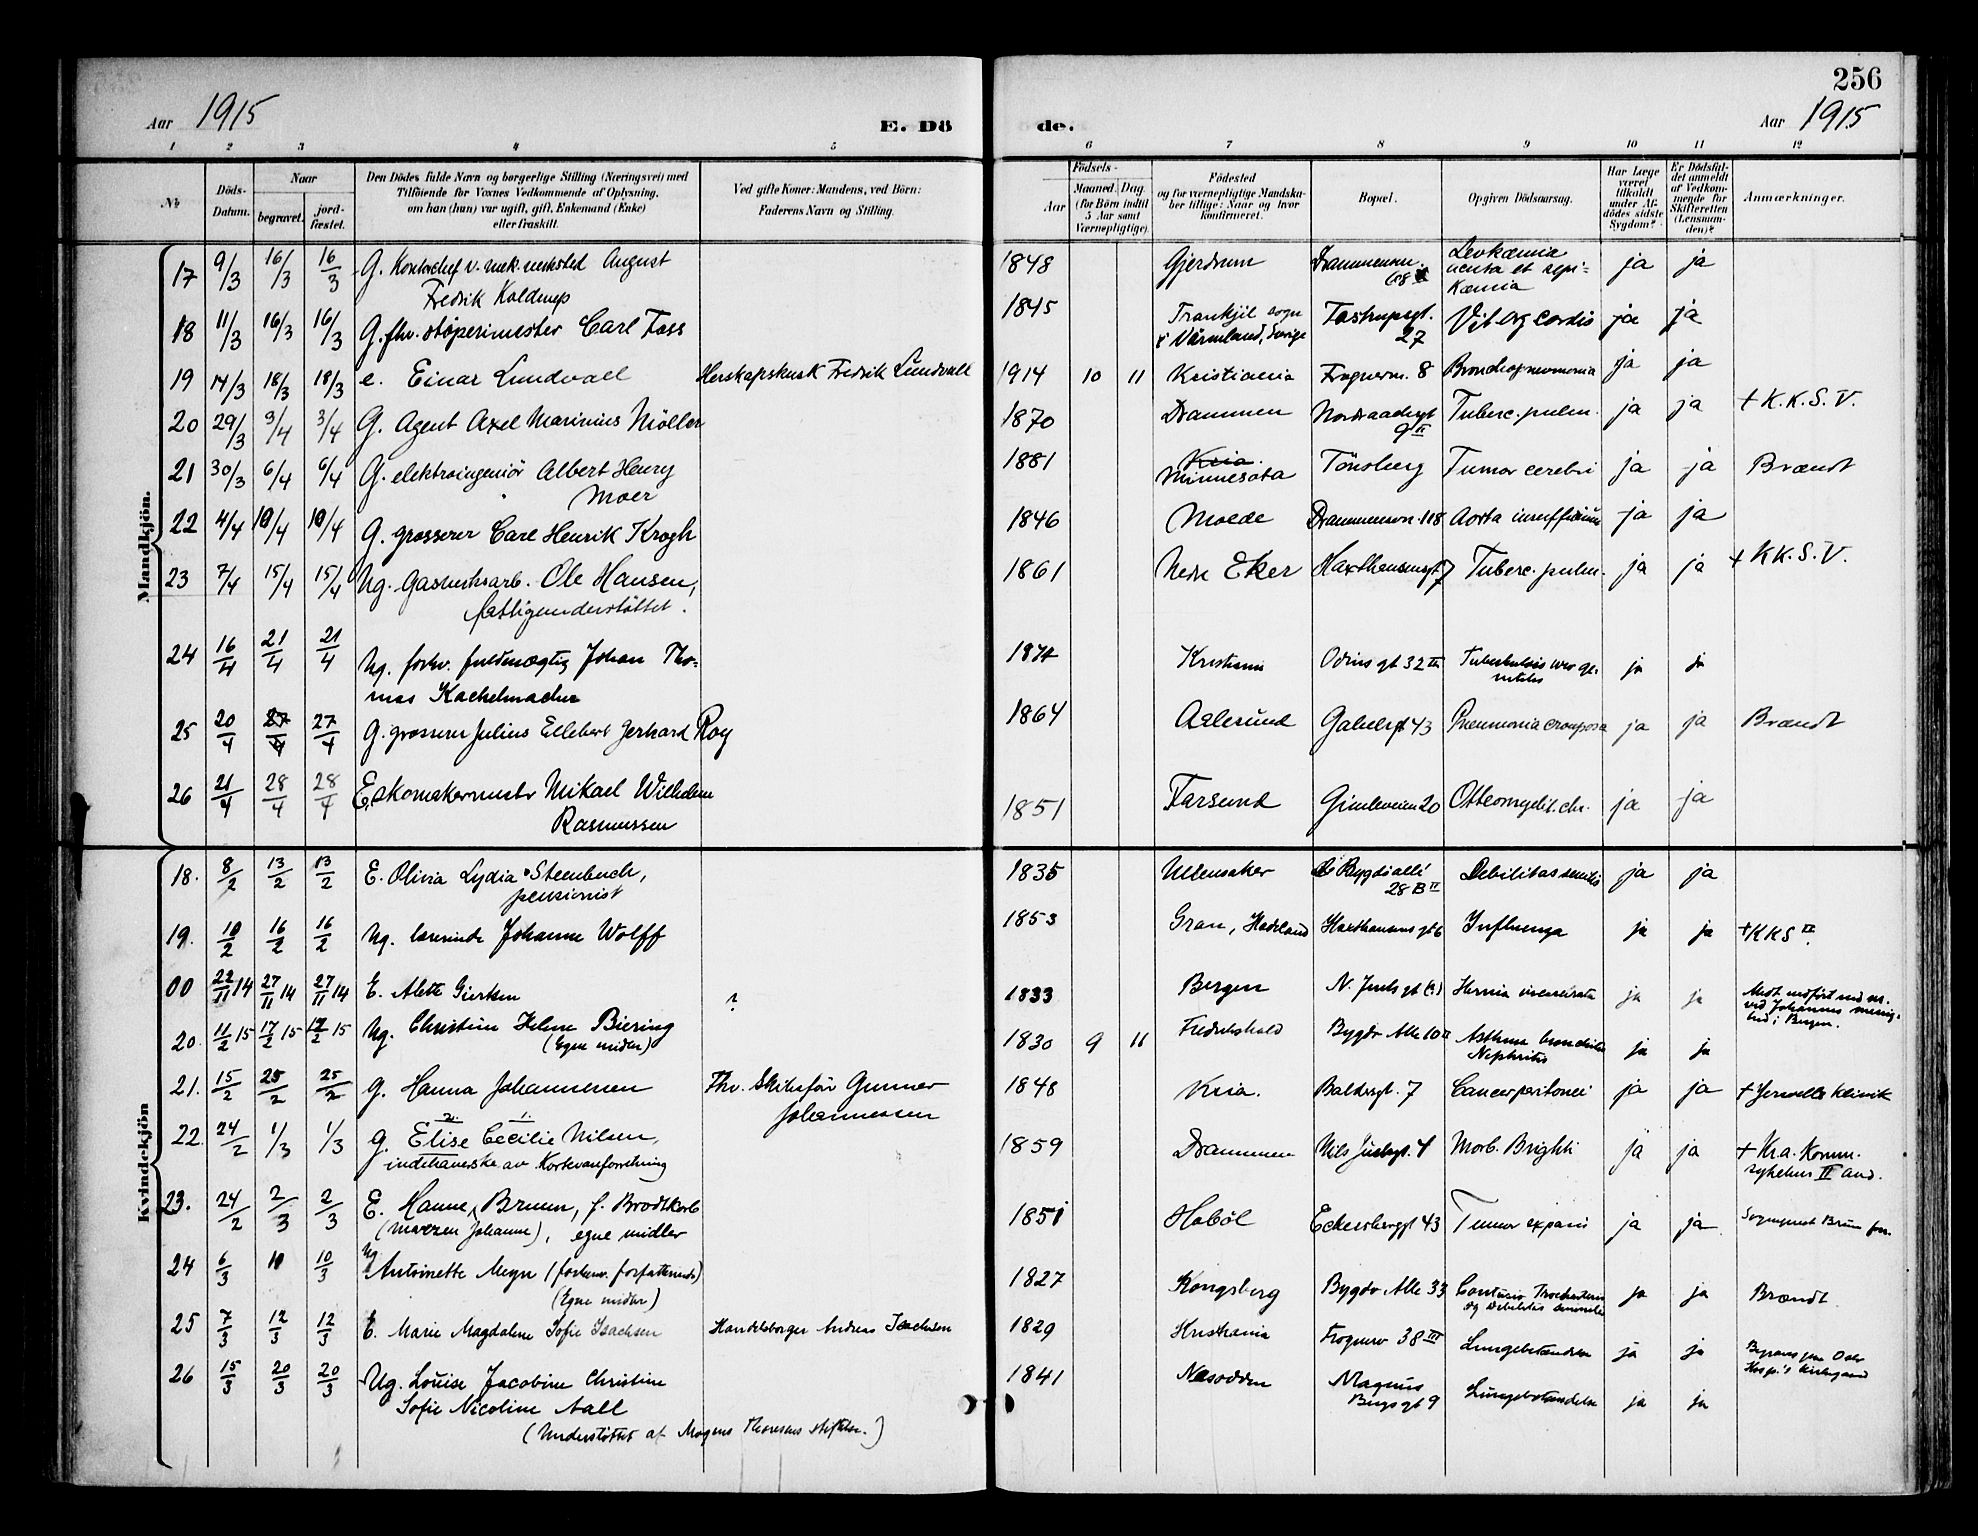 256
Aar 1915
E. Dö
de.
Aar 1915
1 2 3 4 5 6 7 8 9 10 11 12
№
Döds-
Datum.
Naar
begravet.
jord-
fæstet.
Den Dödes fulde Navn og borgerlige Stilling (Næringsvei) med
Tilföiende for Voxnes Vedkommende af Oplysning.
om han (hun) var ugift, gift, Enkemand (Enke)
eller fraskilt.
Ved gifte Koner: Mandens, ved Börn:
Faderens Navn og Stilling.
Födsels-
Aar
Maaned.
(for Börn indtil
5 Aar samt
Værnepligtige)
Dag.
Födested
og for værnepligtige Mandska-
ber tillige: Naar og hvor
konfirmeret.
Bopæl.
Opgiven Dödsaarsag.
Har Læge
været
tilkaldt
under Af-
dödes sidste
Sygdom?
Er Dödsfal-
det anmeldt
af Vedkom-
mende for
Skifteretten
(Lensman-
den)?
Anmærkninger.
Mandkjön.
17 9/3 16/3 16/3 G. Kontorchef v. mek. verksted August
Fredrik Kolderup
1848 Gjerdrum Drammensv. 68 Levkæmia acuta et ja ja
18 11/3 16/3 16/3 G. fhv. støperimester Carl Foss
1845 sogn i Värmland, Sverige Tostrupsgt. 27 Vit. org. cordis ja ja
19 14/3 18/3 18/3 e. Einar Lundvall Herskapskusk Fredrik Lundvall
1914 10 11 Kristiania Frognerv. 8 Bronchopneumonia ja ja
20 29/3 3/4 3/4 G. Agent Axel Marinius Möller
1870 Drammen Nordraaksgt 9 II Tuberc. pulm. ja ja + K.K.S.V.
21 30/3 6/4 6/4 G. elektroingeniör Albert Henry
Moer
1881 Kria. Minnesota Tönsberg Tumor cerebri ja ja Brændt
22 4/4 10/4 10/4 G. grosserer Carl Henrik Krogh
1846 Molde Drammensv. 118 Aorta insufficiens ja ja
23 7/4 15/4 15/4 Ug. Gasverksarb. Ole Hansen,
fattigunderstöttet.
1861 Nedre Eker Haxthausensgt. 7 Tuberc. pulm. ja ja + K.K.S.V.
24 16/4 21/4 21/4 Ug. forhv. fuldmægtig Johan Tho-
mas Kachelmacher
1874 Kristiania Odins gt 32 III ja ja
25 20/4 27/4 27/4 G. grosserer Julius Ellebert Gerhard Roy
1864 Aalesund Gabelsgt 43 Pneumonia crouposa ja ja Brændt
26 21/4 28/4 28/4 E. skomakermester Mikael Wilhelm
Rasmussen
1851 Farsund Gimleveien 20 Osteomyelit. chr. ja ja
Kvindekjön
18. 8/2 13/2 13/2 E. Olivia Lydia Steenbuch,
pensionist
1835 Ullensaker Bygdöallé 28 B II Debilitas senilis ja ja
19. 10/2 16/2 16/2 Ug. lærerinde Johanne Wolff
1853 Gran, Hadeland Haxthausens gt 6 Influenza ja ja + KKS II.
00 22/11 14 27/11 14 27/11 14 E. Alette Gierken ?
1833 Bergen N. Juels gt Hernia ja ja
20. 11/2 15 17/2 15 17/2 15 Ug. Christine Helene Biering
(Egne midler)
1830 9 11 Fredrikshald Bygdø Alle 10 II Asthma bronchitis Nephritis ja ja
21. 15/2 25/2 25/2 g. Hanna Johannessen Fhv. Skibsför Gunner
Johannessen
1848 Kria. Baldersgt. 7 Cancer peritonei ja ja + Jervells klinik
22. 24/2 1/3 1/3 g. 2. Elise 1. Cecilie Nilsen,
indehaverske av Kortevareforretning
1859 Drammen Nils Juelsgt. 4 Morb. Brightii ja ja + Kra. Komm. sykehus II avd.
23. 24/2 2/3 2/3 E. Hanne Bruun, f. Brodtkorb
Johanne), egne midler
1851 Haböl Eckersbergsgt 43 Tumor ja ja
24 6/3 10 10/3 Ug Antoinette Meyn (forhenv. forfatterinde)
(Egne midler)
1827 Kongsberg Bygdø Alle 33 Contusio og Debilitas senilis ja ja Brændt
25 7/3 12/3 12/3 E. Marie Magdalene Sofie Isachsen Handelsborger Andreas Isachsen
1829 Kristiania Frognerv 38 III Lungebetændelse ja ja
26 15/3 20/3 20/3 Ug. Louise Jacobine Christine
Sofie Nicoline Aall
(Understöttet af Mogens Thoresens stiftelse.)
1841 Næsodden Magnus Bergs gt 9 Lungebetændelse ja ja